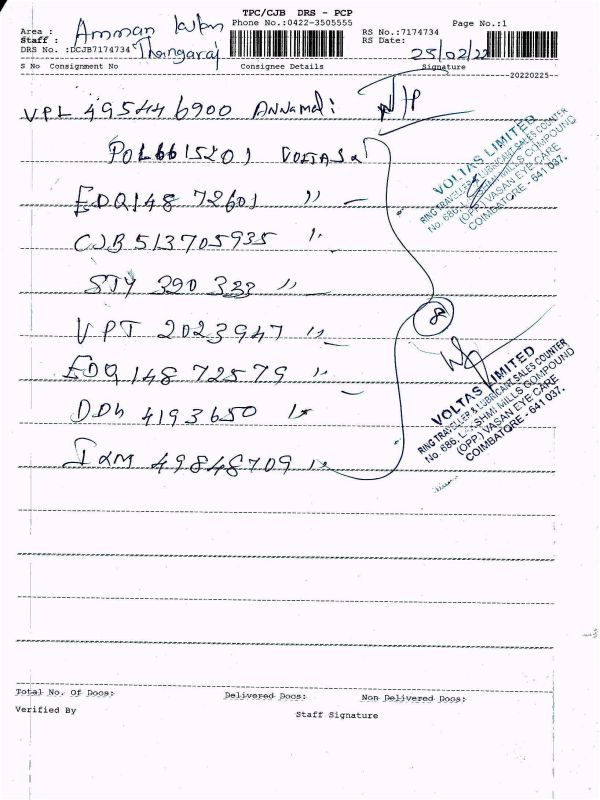 TPC/CJB DRS - PCP
Phone No.:0422-3505555
Page No.:1
Area : Amman
Staff : Thangaraj
DRS No. :DCJB7174734
RS No.:7174734
RS Date: 25/02/22
S No Consignment No Consignee Details Signature
20220225
VPL 495446900 Annamal:
POL661520 VOLTAS
EDQ148 72601 〃
CJB 513705935 〃
STY 390 333 〃
VPT 2023947 〃
EDQ 148 72579 〃
4193650 〃
49848709 〃
8
VOLTAS LIMITED
RING TRAVELLER & LUBRICANT SALES COUNTER
No 686, LAKSHMI MILLS COMPOUND
(OPP) VASAN EYE CARE
COIMBATORE - 641 037.
VOLTAS LIMITED
RING TRAVELLER & LUBRICANT SALES COUNTER
No 686, LAKSHMI MILLS COMPOUND
(OPP) VASAN EYE CARE
COIMBATORE - 641 037.
Total No. Of Docs: Delivered Docs: Non Delivered Docs:
Verified By Staff Signature